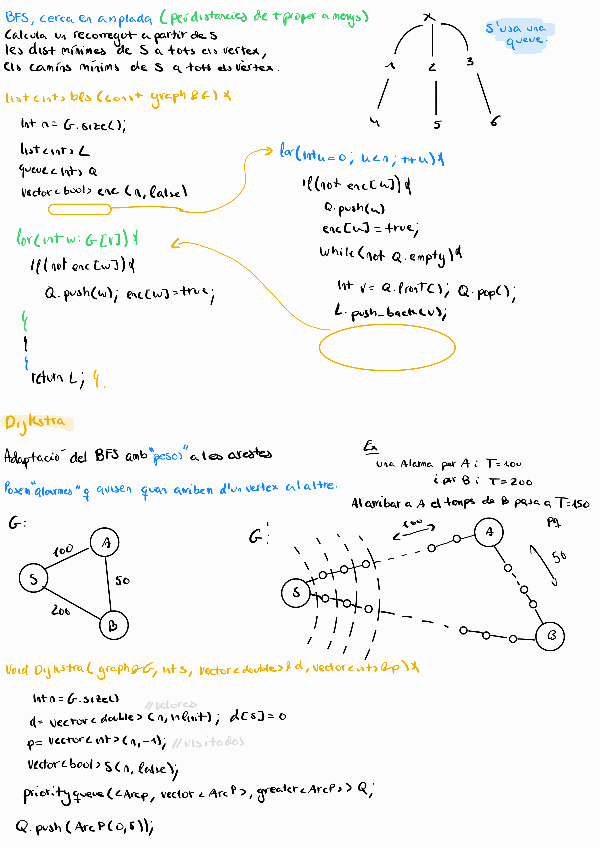 BFS, cerca en amplada (per distancies de + proper a menys)
Calcula un recorregut a partir de S
les dist mínimes de S a tots els vertex,
els camins mínims de S a tots els vertex.
S'usa una
queue.
X
1 2 3
4 5 6
list<int> bfs (const graph &G) {
int n = G.size();
list<int> L
queue<int> Q
vector<bool> enc (n, false)
for(int w: G[v]) {
if(not enc[w]) {
Q.push(w); enc[w]=true;
}
}
}
return L; }.
for(int u=0; u<n; ++u) {
if(not enc[u]) {
Q.push(u)
enc[u]=true;
while(not Q.empty) {
int v = Q.front(); Q.pop();
L.push_back(v);
Dijkstra
Adaptació del BFS amb "pesos" a les arestes
Posem "alarmes" q avisen quan arriben d'un vertex al altre.
Ex
una Alarma per A i T=100
i per B i T=200
Al arribar a A el temps de B passa a T=150
G:
100
A
S
50
200
B
G':
100
A
Pq
50
S
B
void Dijkstra( graph&G, int s, vector<double>& d, vector<int>&p) {
int n = G.size()
//valores
d= vector<double>(n, infinit); d[s]=0
p= vector<int>(n,-1); //visitados
vector<bool> S(n, false);
priority queue(<ArcP, vector<ArcP>, greater<ArcP>> Q;
Q.push(ArcP(0,s));